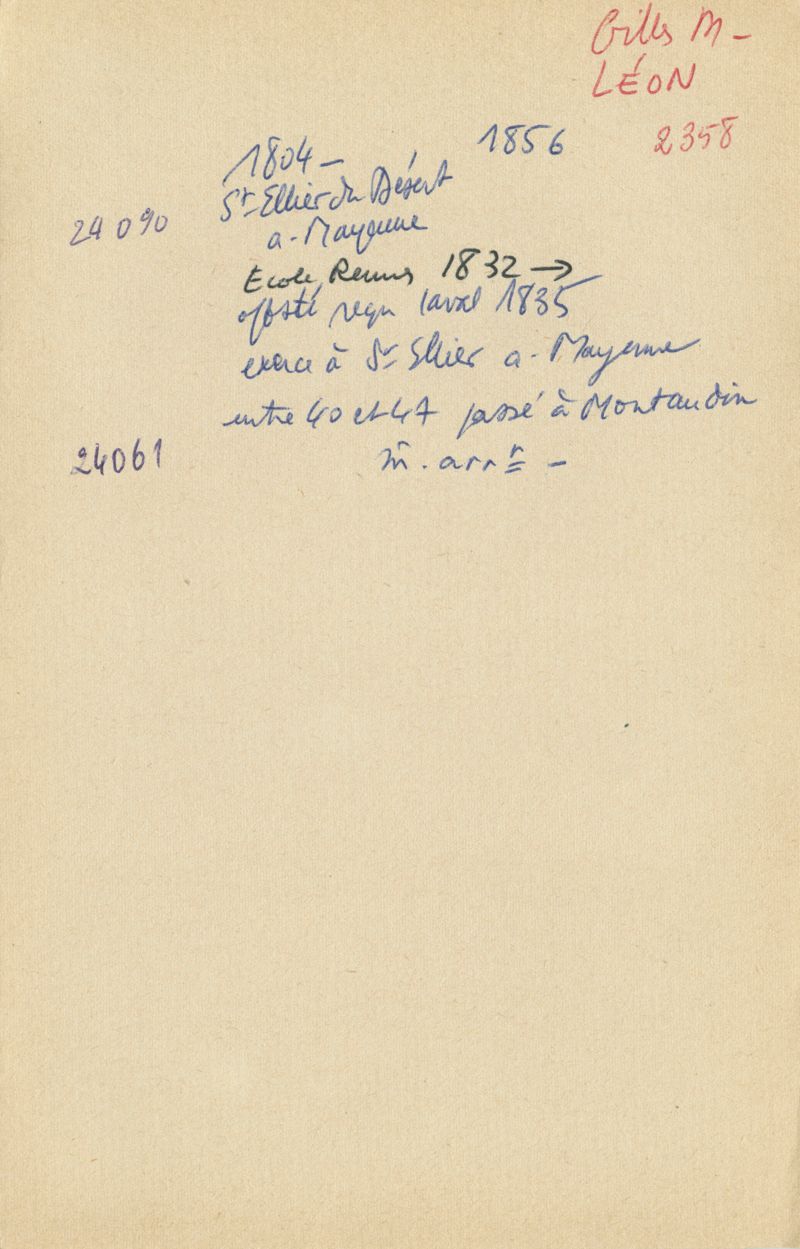 Gilles M -
LÉON
1804 - 1856 2358
St-Ellier du Désert
24090
a - Mayenne
Ecole Rennes 1832 →
offsté reçu Laval 1835
exerce à St Ellier a - Mayenne
entre 40 et 47 passé à Montaudin
24061 m̄. arrr -